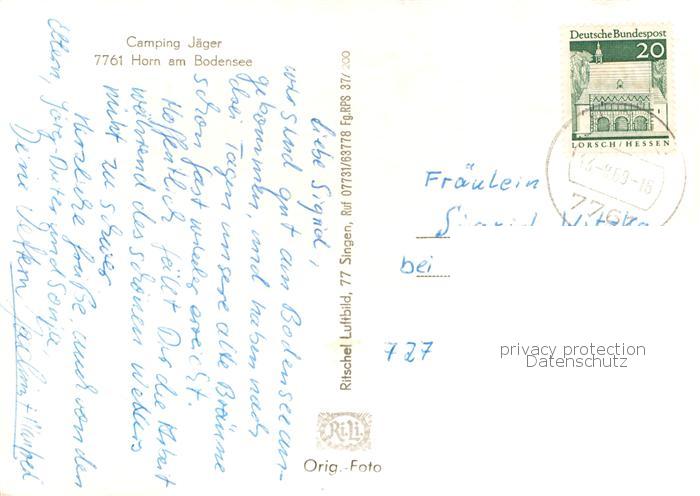 Camping Jäger
7761 Horn am Bodensee
Liebe Sigrid,
wir sind gut am Bodensee an-
gekommen, und haben nach
drei Tagen unsere alte Bräune
schon fast wieder erreicht.
Hoffentlich fällt Dir die Arbeit
während des schönen Wetters
nicht zu schwer.
Herzliche Grüße auch von den
Eltern, Jörg-Dieter und Sonja,
Deine Vettern Joachim + Manfred
Ritschel Luftbild, 77 Singen, Ruf 07731/63778 Fg.RPS 37/200
Ri.Li.
Orig.-Foto
Deutsche Bundespost
20
LORSCH/HESSEN
69-18
776
Fräulein
Sigrid
bei
727
privacy protection
Datenschutz